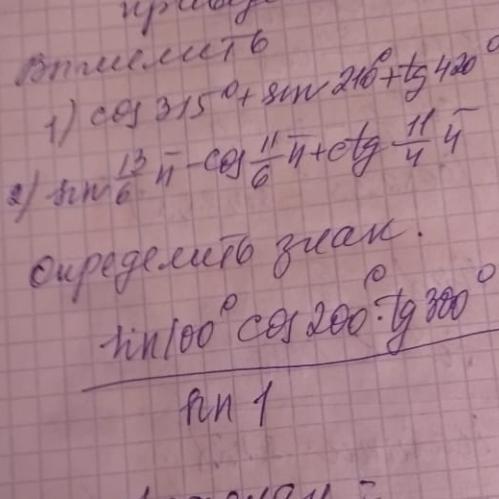 Вычислить
1) cos 315° + sin 210° + tg 420°
2) sin 13/6 π - cos 11/6 π + ctg 11/4 π
Определить знак.
sin 100° cos 200° · tg 300°
sin 1